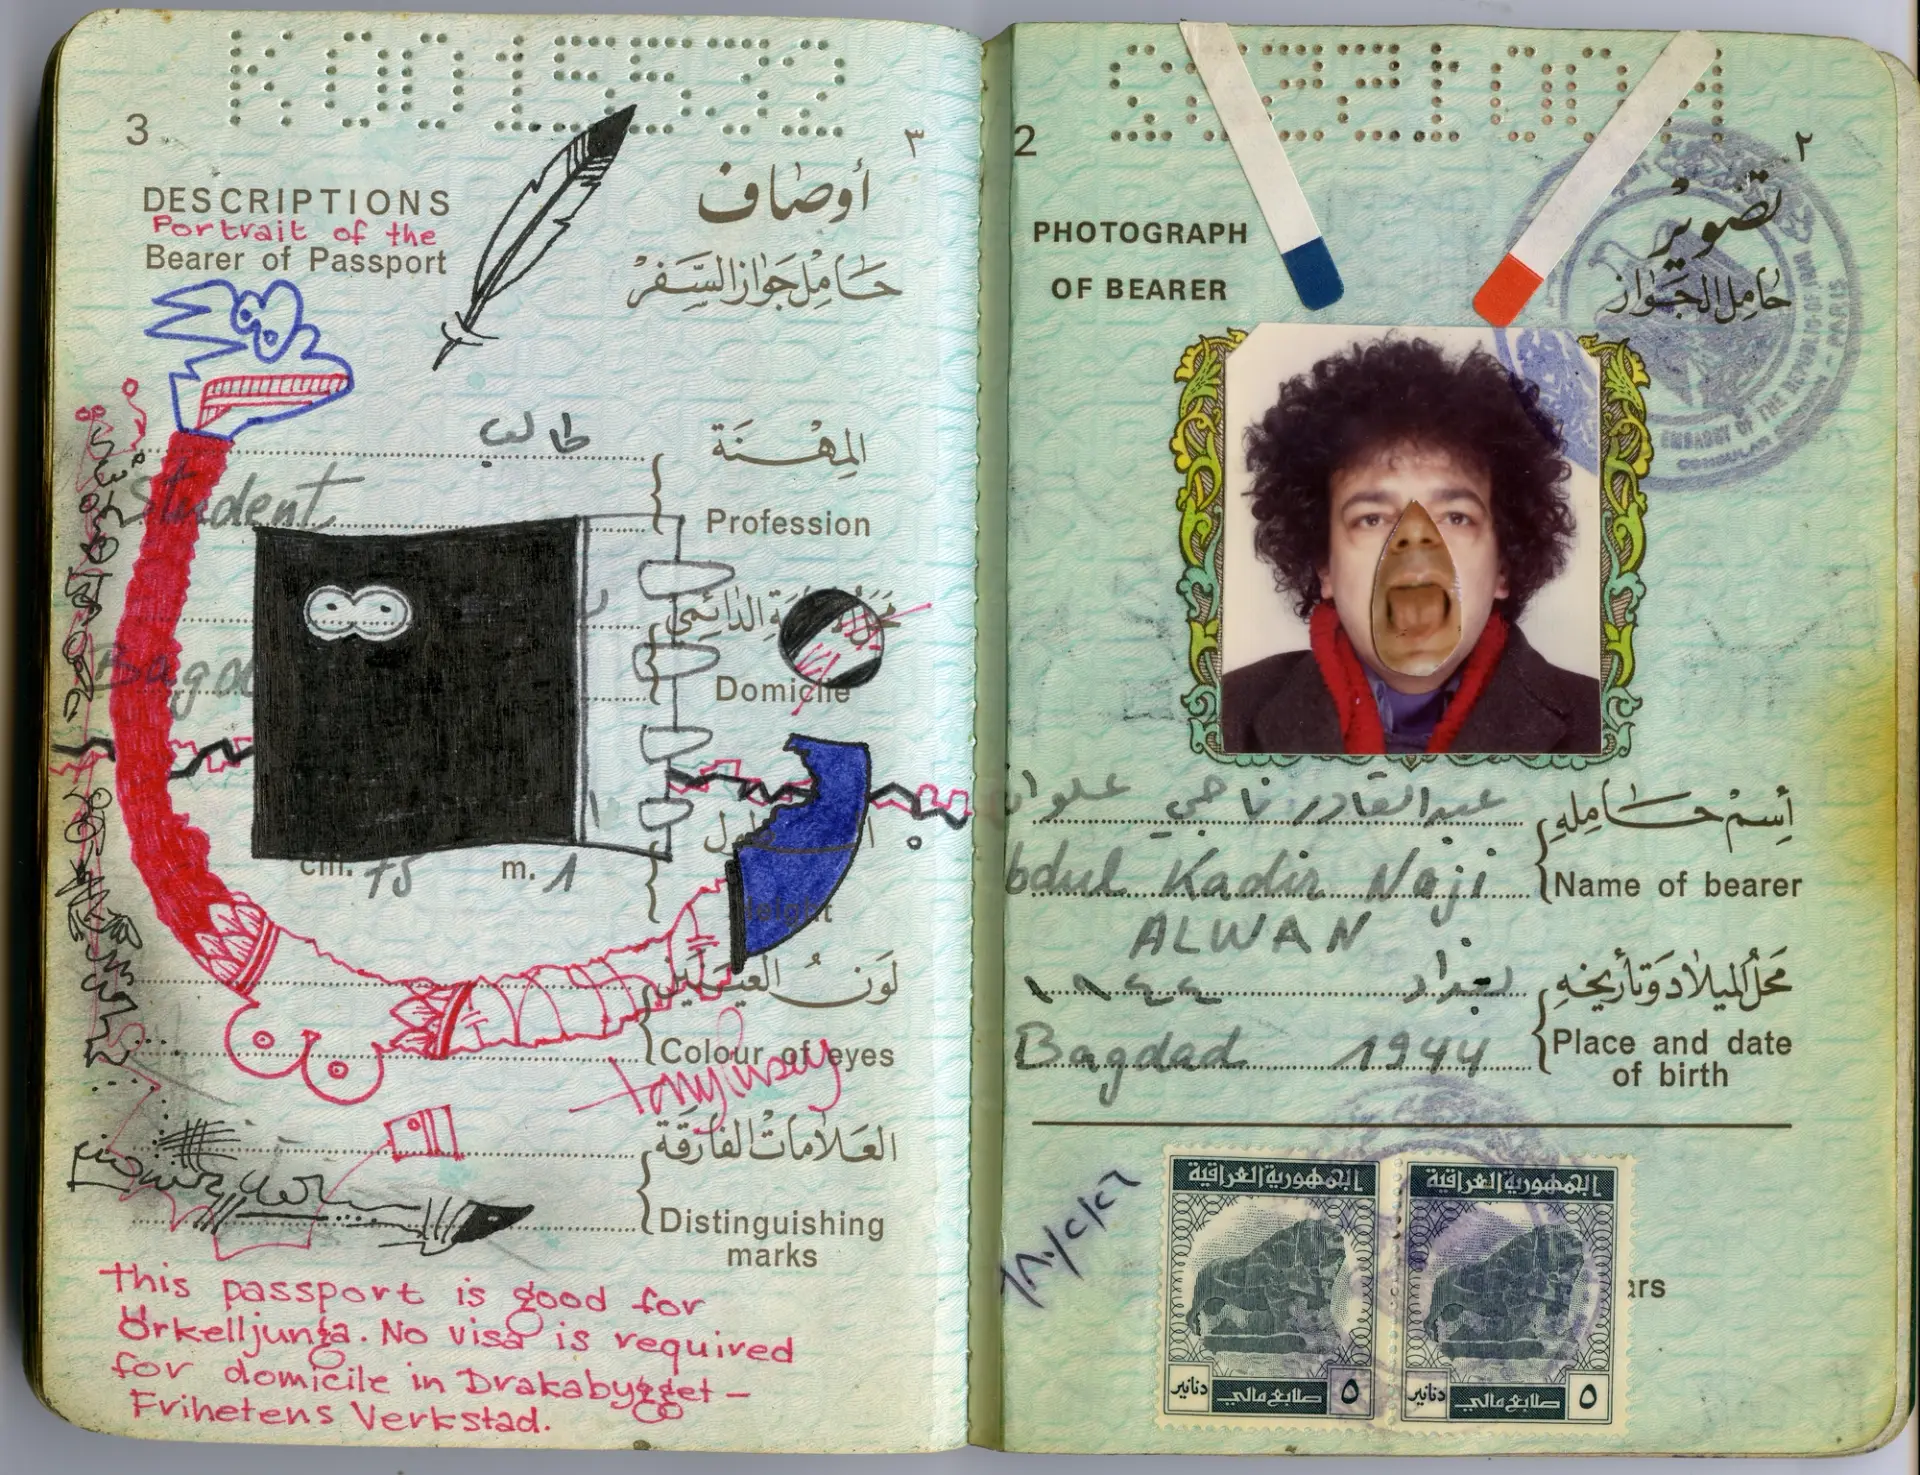 K0015572
3
٣
DESCRIPTIONS
Portrait of the
Bearer of Passport
أوصاف
حامل جواز السفر
طالب
المهنة
Student
Profession
الدائمي
Domicile
cm. 75
m. 1
Height
لون العينين
Colour of eyes
العلامات الفارقة
Distinguishing
marks
This passport is good for
Örkelljunga. No visa is required
for domicile in Drakabygget –
Frihetens Verkstad.
2
٢
PHOTOGRAPH
OF BEARER
تصوير
حامل الجواز
EMBASSY OF THE REPUBLIC OF IRAQ
CONSULAR SECTION - PARIS
عبدالقادر ناجي علوان
أسم حامله
bdul Kadir Naji
Name of bearer
ALWAN
بغداد ١٩٤٤
محل الميلاد وتأريخه
Bagdad 1944
Place and date
of birth
الجمهورية العراقية
الجمهورية العراقية
دنانير
طابع مالي
٥
دنانير
طابع مالي
٥
ars